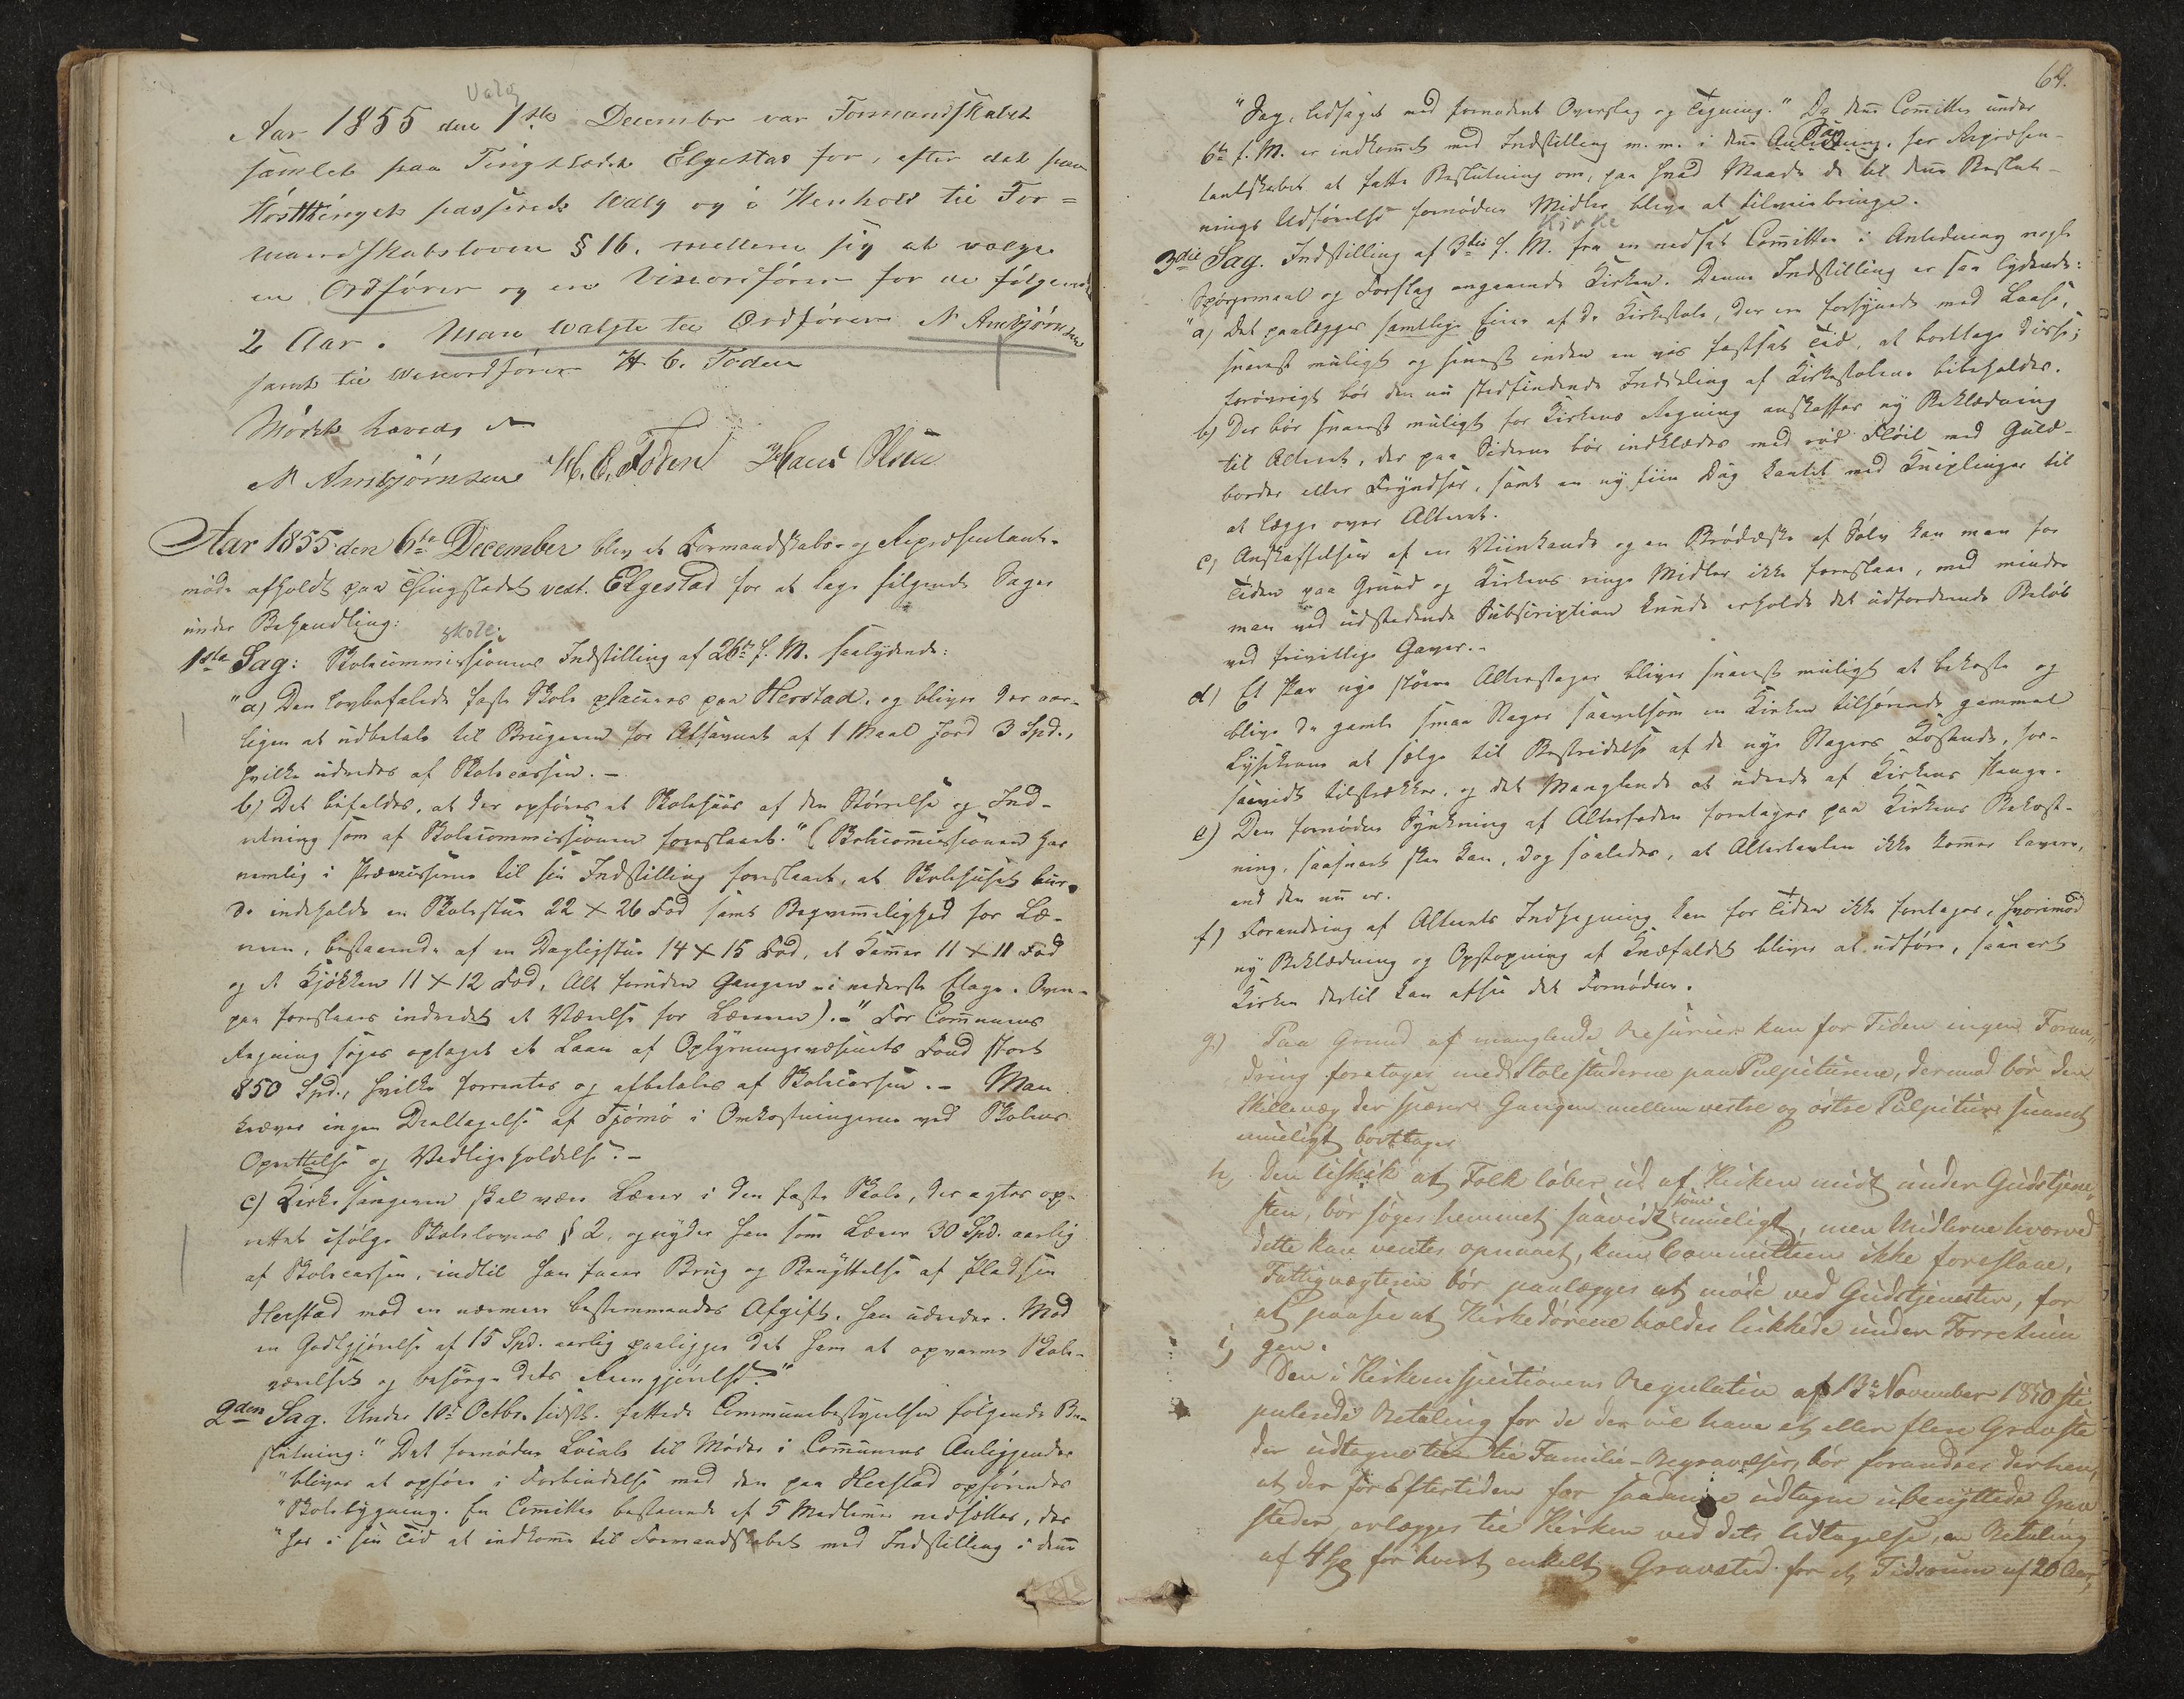 Valg
Aar 1855 den 1ste Decembr var Formandskabet
samlet paa Tingstedet Elgestad for, efter det paa
Høstthinget passerede Valg og i Henhold til For=
mandskabsloven § 16. mellem sig at vælge
en Ordfører og en Viceordfører for de følgende
2 Aar. Man valgte til Ordfører N Ambjørnsen
samt til Viceordfører H. C. Foden
Mødet hævedes
N Ambjørnsen H. C. Foden Hans
Aar 1855 den 6te December blev et Formandskabs- og Repræsentant-
møde afholdt paa Thingstedet vest. Elgestad for at tage følgende Sager
under Behandling:
Skole:
1ste Sag: Skolecommissionens Indstilling af 26de f. M. saalydende:
"a) Den lovbefalede faste Skole placeres paa Herstad, og bliver der aar-
ligen at udbetale til Brugeren for Afsavnet af 1 Maal Jord 3 Spd.,
hvilke udredes af Skolecassen. –
b) Det bifaldes, at der opføres et Skolehuus af den Størrelse og Ind-
retning som af Skolecommissionen foreslaaet." (Skolecommissionen har
nemlig i Præmisserne til sin Indstilling foreslaaet, at Skolehuset bur-
de indeholde en Skolestue 22 × 26 Fod samt Beqvemmelighed for Læ-
reren, bestaaende af en Dagligstue 14 × 15 Fod, et Kammer 11 × 11 Fod
og et Kjøkken 11 × 12 Fod, Alt foruden Gangen – i nederste Etage. Oven-
paa foreslaaes indredet et Værelse for Læreren). –" For Communens
Regning søges optaget et Laan af Oplysningsvæsenets Fond stort
850 Spd., hvilke forrentes og afbetales af Skolecassen. – Man
kræver ingen Deeltagelse af Tjømø i Omkostningerne ved Skolens
Oprettelse og Vedligeholdelse. –
c) Kirkesangeren skal være Lærer i den faste Skole, der agtes op-
rettet ifølge Skolelovens § 2, og nyder han som Lærer 30 Spd. aarlig
af Skolecassen, indtil han faaer Brug og Benyttelse af Pladsen
Herstad mod en nærmere bestemmendes Afgift, han udreder. Mod
en Godtgjørelse af 15 Spd. aarlig paaligger det ham at opvarme Skole-
værelset og besørge dets Reengjørelse."
2den Sag. Under 10de Octbr. sidstl. fattede Communebestyrelsen følgende Be-
slutning: "Det fornødne Locale til Møder i Communens Anliggender
"bliver at opføre i Forbindelse med den paa Herstad opførendes
"Skolebygning. En Committee bestaaende af 5 Medlemmer nedsættes, der
"har i sin Tid at indkomme til Formandskabet med Indstilling i denne
64.
"Sag, ledsaget med fornødent Overslag og Tegning." Da denne Committee under
6te f. M. er indkommet med Indstilling m. m. i denne Sag, har Repræsen-
tantskabet at fatte Beslutning om, paa hvad Maade de til denne Beslut-
nings Udførelse fornødne Midler blive at tilveiebringe.
Kirke
3die Sag. Indstilling af 3die f. M. fra en nedsat Committee i Anledning nogle
Spørgsmaal og Forslag angaaende Kirken. Denne Indstilling er saa lydende:
"a) Det paalægges samtlige Eiere af de Kirkestole, der ere forsynede med Laase,
snarest muligt og senest inden en vis fastsat Tid, at borttage disse;
forøvrigt bør den nu stedfindende Inddeling af Kirkestolene bibeholdes.
b) Der bør snarest muligt for Kirkens Regning anskaffes ny Beklædning
til Alteret, der paa Siderne bør indklædes med rød Fløil med Guld-
border eller Fryndser, samt en ny fiin Dug kantet med Kniplinger til
at lægge over Alteret.
c) Anskaffelsen af en Viinkande og en Brødæske af Sølv kan man for
Tiden paa Grund og Kirkens ringe Midler ikke foreslaae, med mindre
man ved udstedende Subscription kunde erholde det udfordrende Beløb
ved frivillige Gaver. –
d) Et Par nye større Alterstager bliver snarest muligt at bekoste og
blive de gamle smaa Stager saavelsom en Kirken tilhørende gammel
Lysekrone at sælge til Bestridelse af de nye Stagers Kostende, for-
saavidt tilstrækker, og det Manglende at udrede af Kirkens Penge.
e) Den fornødne Synkning af Alterfoden foretages paa Kirkens Bekost-
ning, saasnart skee kan, dog saaledes, at Altertavlen ikke kommer lavere,
end den nu er.
f) Forandring af Alterets Indhegning kan for Tiden ikke foretages, hvorimod
ny Beklædning og Opstopning af Knæfaldet bliver at udføre, saasnart
Kirken dertil kan afsee det Fornødne.
g.) Paa Grund af manglende Resurcer kan for Tiden ingen Foran„
dring foretages med Stolestaderne paa Pulpiturene, dermod bør den
Skillevæg der spærrer Gangen mellem vestre og østre Pulpitur snarest
mueligt borttages
h, Den Uskik at Folk løber ud af Kirken midt under Gudstjene„
sten, bør søges hemmet saavidt som mueligt, men Midlerne hvorved
dette kan ventes opnaaet, kan Committeen ikke foreslaae,
Fattigvægteren bør paalægges at møde ved Gudstjenesten, for
at paasee at Kirkedørene holdes lukkede under Forretnin
gen.
i, Den i Kirkeinspectionens Regulativ af 13de November 1850 sti
pulerede Betaling for de der vil have et eller flere Gravste
der udtagne til Familie-Begravelser, bør forandres derhen,
at der for Eftertiden for saadanne udtagne ubenyttede Grav
steder, erlægges til Kirken ved dets Udtagelse, en Betaling
af 4 Sp for hvert enkelt Gravsted for et Tidsrum af 20 Aar,